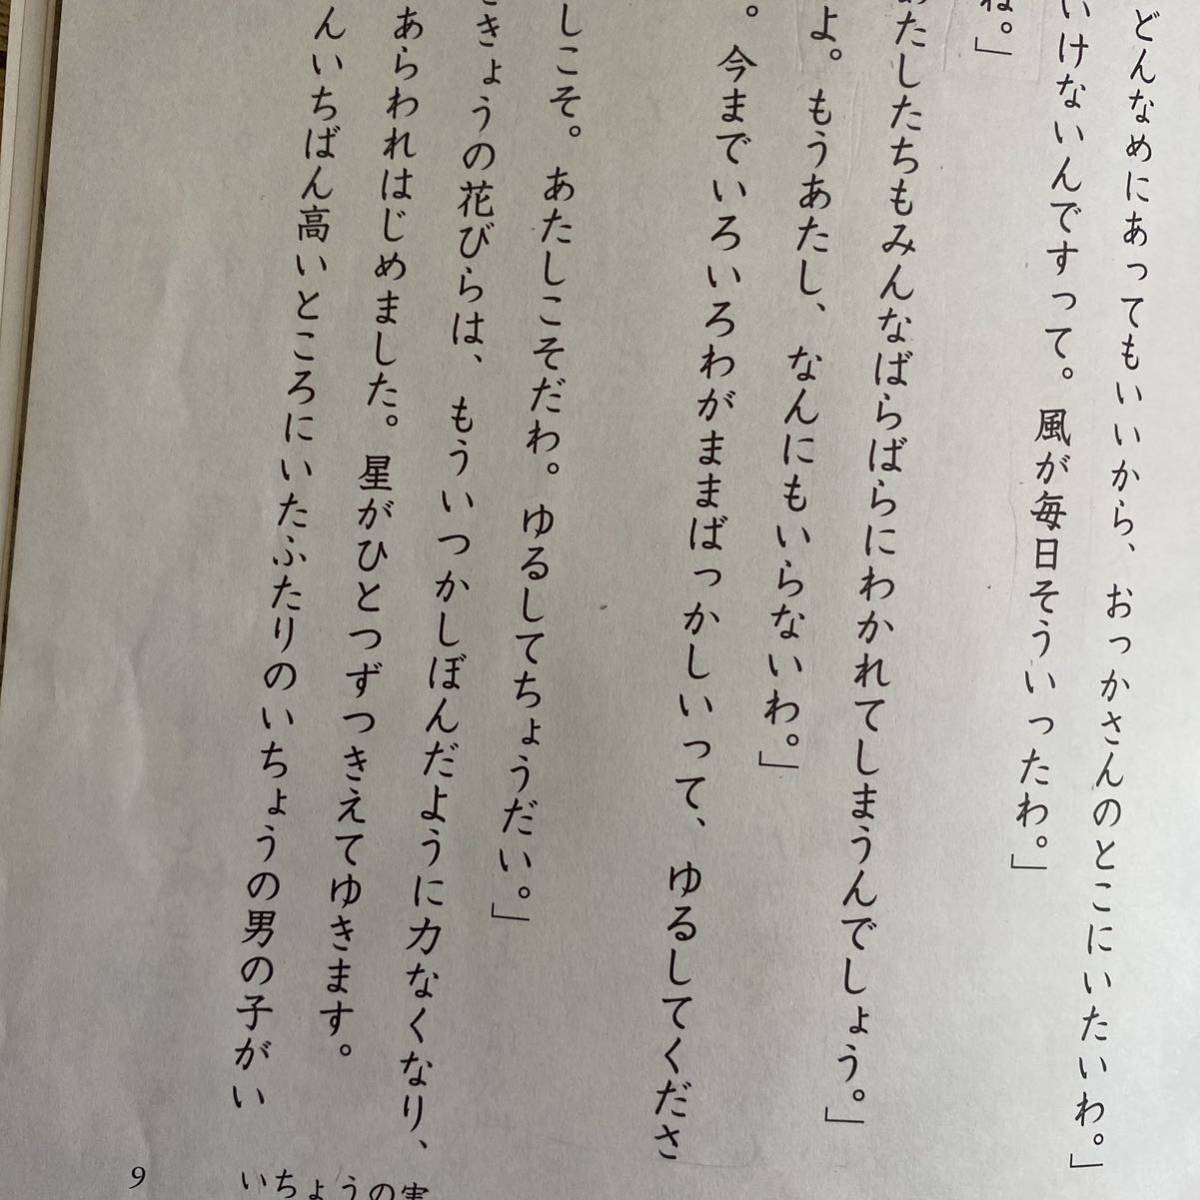 どんなめにあってもいいから、おっかさんのとこにいたいわ。」
いけないんですって。風が毎日そういったわ。」
ね。」
あたしたちもみんなばらばらにわかれてしまうんでしょう。」
よ。もうあたし、なんにもいらないわ。」
。今までいろいろわがままばっかしいって、ゆるしてくださ
しこそ。あたしこそだわ。ゆるしてちょうだい。」
ききょうの花びらは、もういつかしぼんだように力なくなり、
あらわれはじめました。星がひとつずつきえてゆきます。
んいちばん高いところにいたふたりのいちょうの男の子がい
9 いちょうの実